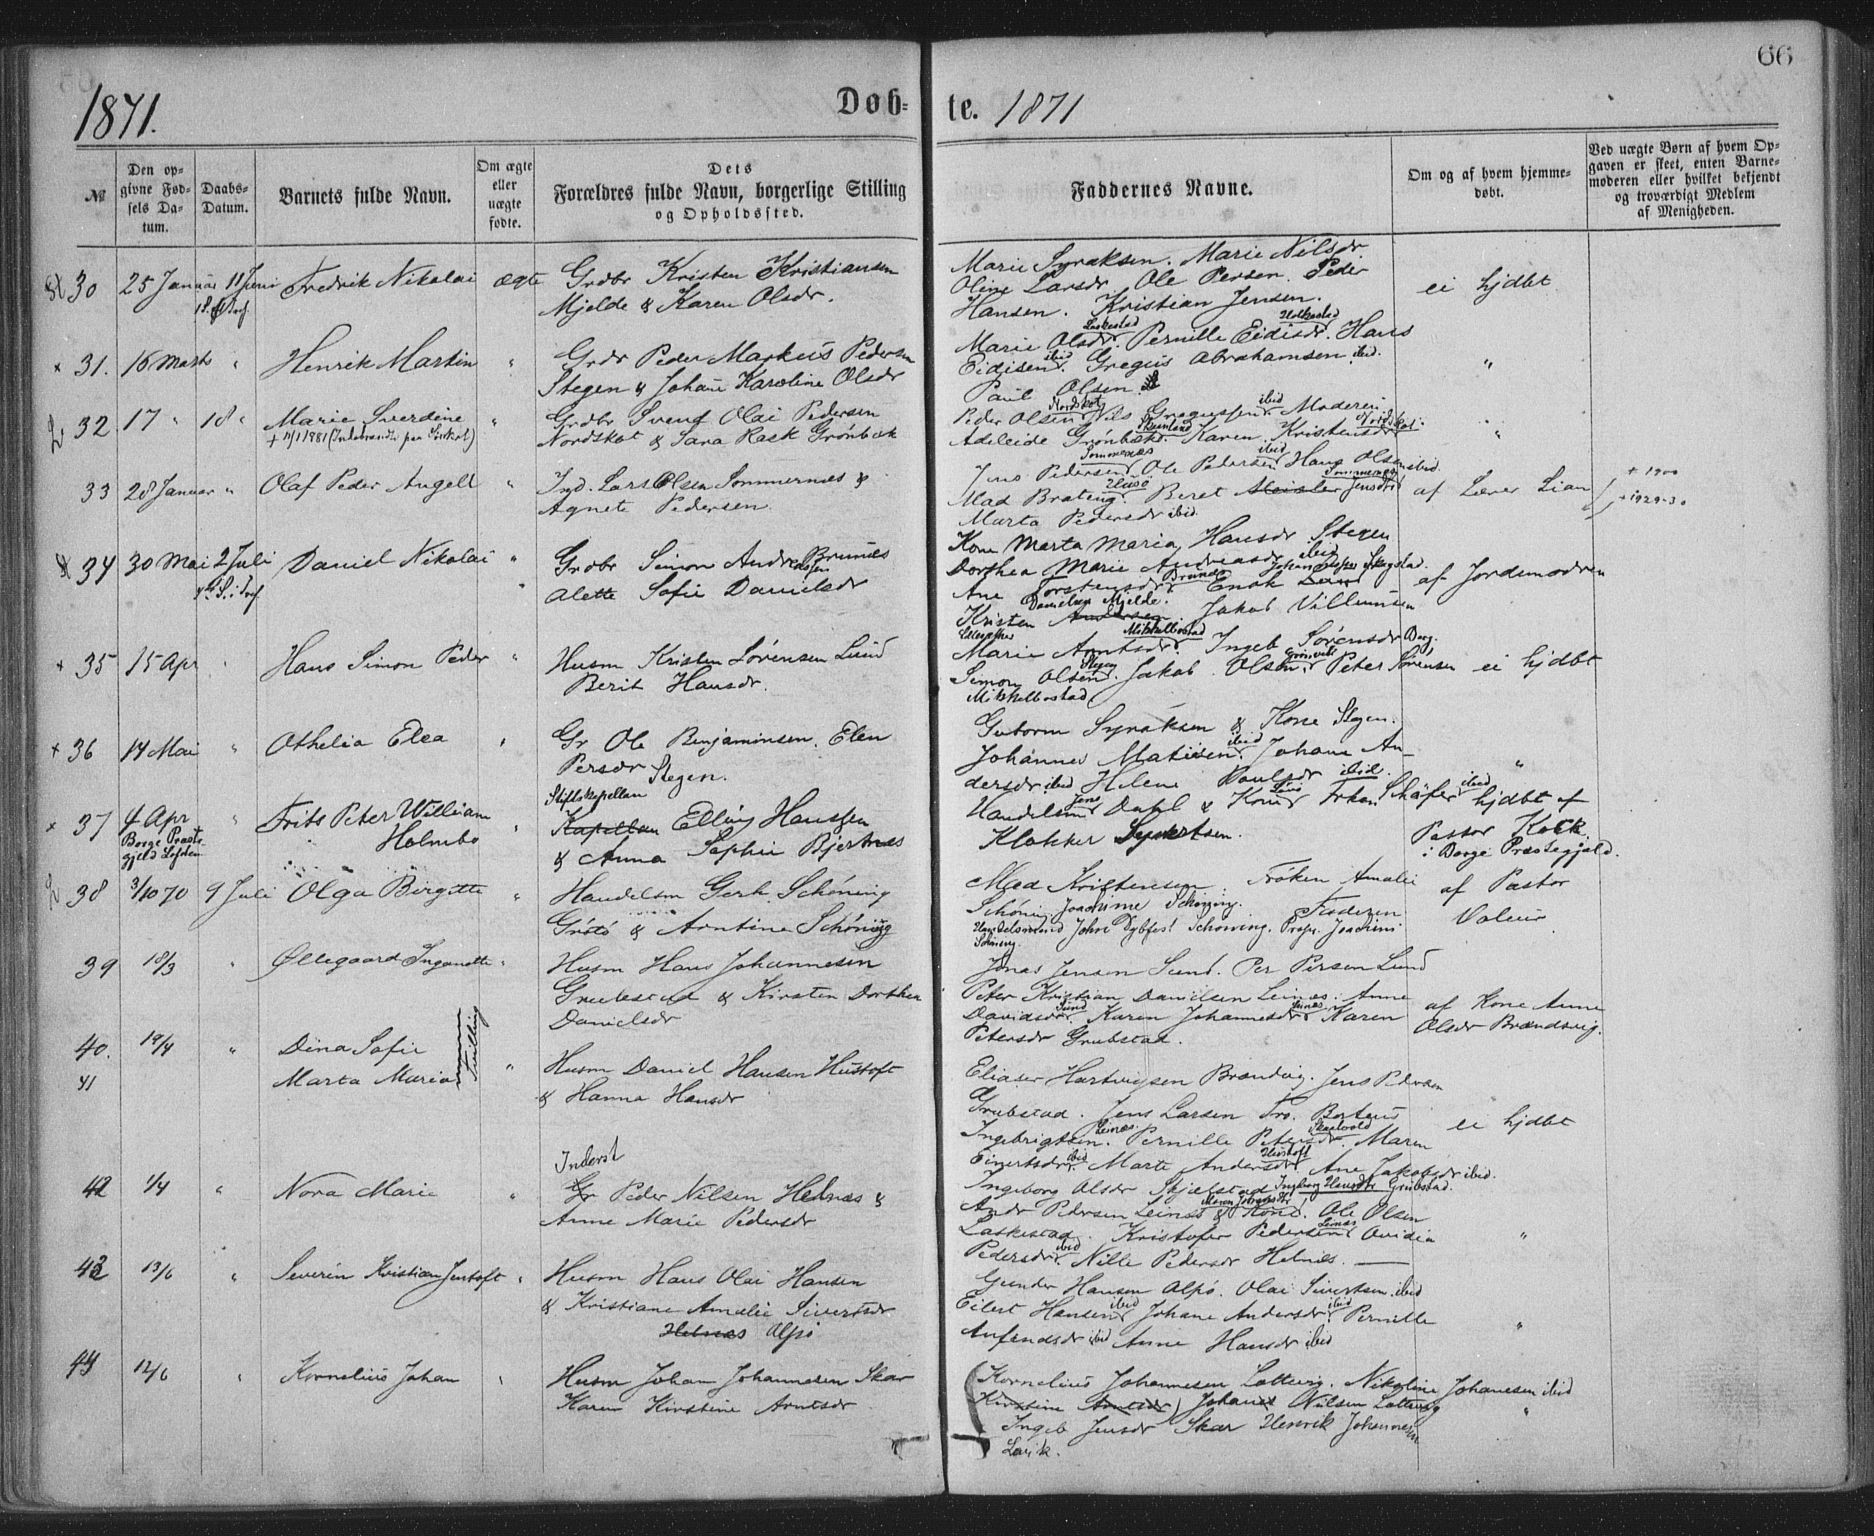 66
1871.
Døb-
te. 1871
№
Den op-
givne Fød-
sels Da-
tum.
Daabs-
Datum.
Barnets fulde Navn.
Om ægte
eller
uægte
fødte.
Dets
Forældres fulde Navn, borgerlige Stilling
og Opholdssted.
Faddernes Navne.
Om og af hvem hjemme-
døbt.
Ved uægte Børn af hvem Op-
gaven er skeet, enten Barne-
moderen eller hvilket bekjendt
og troværdigt Medlem
af Menigheden.
30 25 Januar 11 Juni Fredrik Nikolai ægte Grdbr Kristen Kristiansen
Mjelde & Karen Olsdr.
Marie Syraksen. Marie Nilsdr.
Oline Larsdr Ole Persen. Peder
Hansen. Kristian Jensen.
ei hjdbt
31. 16 Marts " Henrik Martin " Grdr Peder Markus Pedersen
Stegen & Johane Karoline Olsdr
Laskestad Holkestad
Marie Olsdr. Pernille Eidisdr. Hans
Eidisen ibid. Gregus Abrahamsen ibid.
Paul Olsen
"
32 17 " 18 " Marie Sverdine " Grdbr Svend Olai Pedersen
Nordskot & Sara Rask Grønbæk
Peder Olsen Nordskot Nils Gregussen ibid Moderen.
Adeleide Grønbæk. Karen Kristensdr Nordskot.
"
33 28 Januar " Olaf Peder Angell " Ind. Lars Olsen Sommernæs &
Agnete Pedersen.
Sommernæs ibid
Jens Pedersen Ole Pedersen Hans Olsen ibid.
Mad Brateng. Husø Beret Jensdr Sommernæs
Marta Pedersdr ibid.
af Lærer Lian
+ 1900
+ 1929-30
34 30 Mai 2 Juli Daniel Nikolai " Grdbr Simon Andreassen Brunæs
Alette Sofie Danielsdr
Kone Marta Maria Hansdr. Stegen
Dorthea Marie Andreasdr ibid
Ane Torstensdr. Brunæs Enok
Kristen Danielsen Mjelde. Jakob Villumsen
af Jordemodren
35 15 Apr " Hans Simon Peder " Husm Kristen Sørensen Lund
Berit Hansdr.
Marie Arntsdr Mikkelbostad Ingeb Sørensdr Borg.
Simon Olsen Stegen. Jakob Olsen. Peter Sørensen
Mikkelbostad
ei hjdbt
36 14 Mai " Othelia Elea " Gr Ole Benjaminsen. Elen
Persdr Stegen.
Gutorm Syraksen & Kone Stegen.
Johannes Matisen. ibid Johane An-
dersdr ibid Helene Paulsdr ibid.
"
37 4 Apr " Frits Peter William
Borge Præste
gjeld Lofoten
Holmbo "
Stiftskapellan
Kapellan Elling Hanssen
& Anna Sophie Bjertnæs
Handelsm Jens Dahl & Kone Frken Schøfer ibid
Klokker Syvertsen.
hjdbt af
Pastor Kock
i Borge Præstegjeld.
38 3/10 70 9 Juli Olga Birgitte " Handelsm Gerh. Schöning
Grøtø & Arntine Schöning
Mad Kristensen. Frøken Amalie
Schöning Joachime Schöning. Faderen
Handelsmand John Dybfest Schöning. Joachim
Schöning.
af Pastor
Valeur
39 18/3 " Øllegaard Inganette " Husm Hans Johannesen
Grubestad & Kirsten Dorthea
Danielsdr
Jonas Jensen Sund. Per Persen Lund
Peter Kristian Danielsen Leinæs. Anne
Davidsdr. Sund Karen Johannesdr Leinæs Karen
Petersdr Grubstad.
af Kone Anne
Olsdr Brændvig.
40. 19/4 " Dina Sofie
41 Marta Maria
Tvilling
" Husm Daniel Hansen Hustoft
& Hanna Hansdr
Eliaser Hartvigsen Brændvig. Jens Pedersen
Grubstad. Jens Larsen Bortens
Ingebrigtsen. Leines Pernille Petersdr. Maren
Einertsdr. ibid Marte Andersdr Hustoft Ane Jakobsdr ibid.
ei hjdbt
42 1/4 " Nora Marie "
Inderst
Gr Peder Nilsen Helnæs &
Anne Marie Pedersdr
Ingeborg Olsdr Skjelstad Ingborg Hansdtr Grubstad.
Andr Pedersen Leinæs & Kone. Ole Olsen
Laskestad. Kristofer Pedersen Leines Ovidia
Pedersdr. ibid Nille Pedersdr Helnæs.
"
43 13/6 " Severin Kristian Jentoft " Husm Hans Olai Hansen
& Kristiane Amalie Sivertsdr
Helnæs Alpø
Gunder Hansen Alpø. Olai Sivertsen ibid
Eilert Hansen ibid Johane Andersdr ibid Pernille
Anfendsdr ibid Anne Hansdr ibid
"
44 12/6 " Kornelius Johan " Husm Johan Johannesen Skar
Karen Kirstine Arntsdr
Kornelius Johannesen Lottvig. Nikoline Johanesen ibid
Kirstine Arntsdr Johanes Nilsen Lottvig
Ingeb Jensdr Skar Henrik Johannesen
Lavik.
"